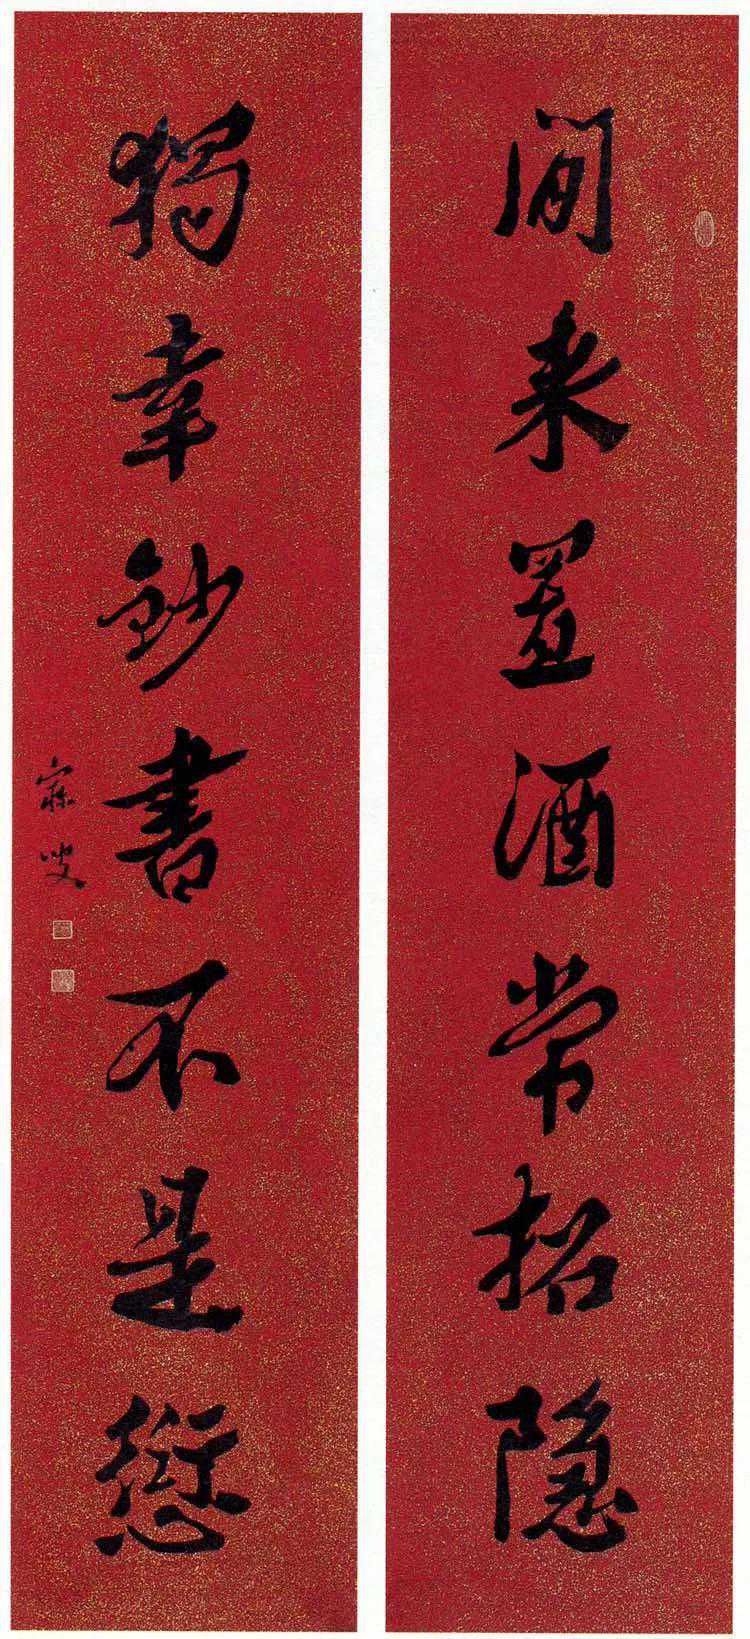 閒来置酒常招隐
獨幸鈔書不是愆
寐叟